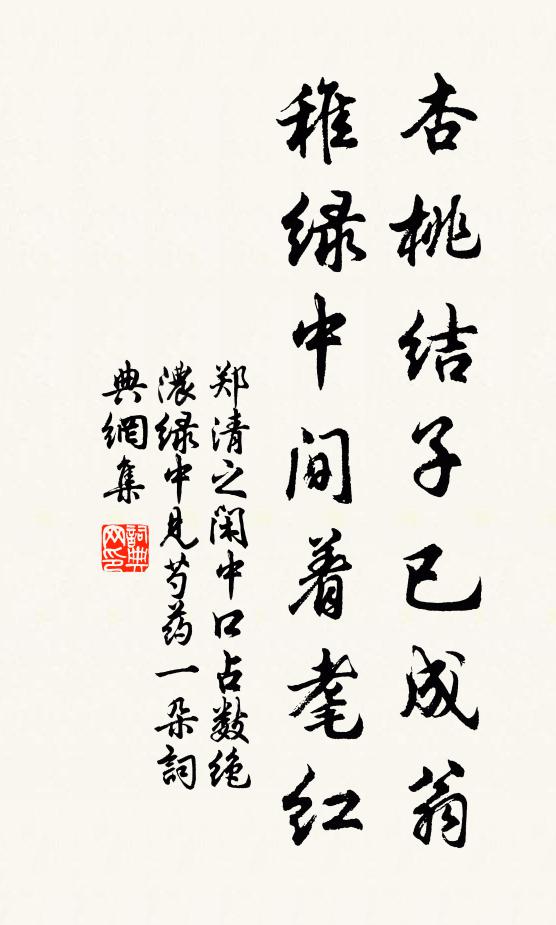 杏桃结子已成翁
稚绿中间着耄红
郑清之闲中口占数绝
浓绿中见芍药一朵词
典網集
詞典网印